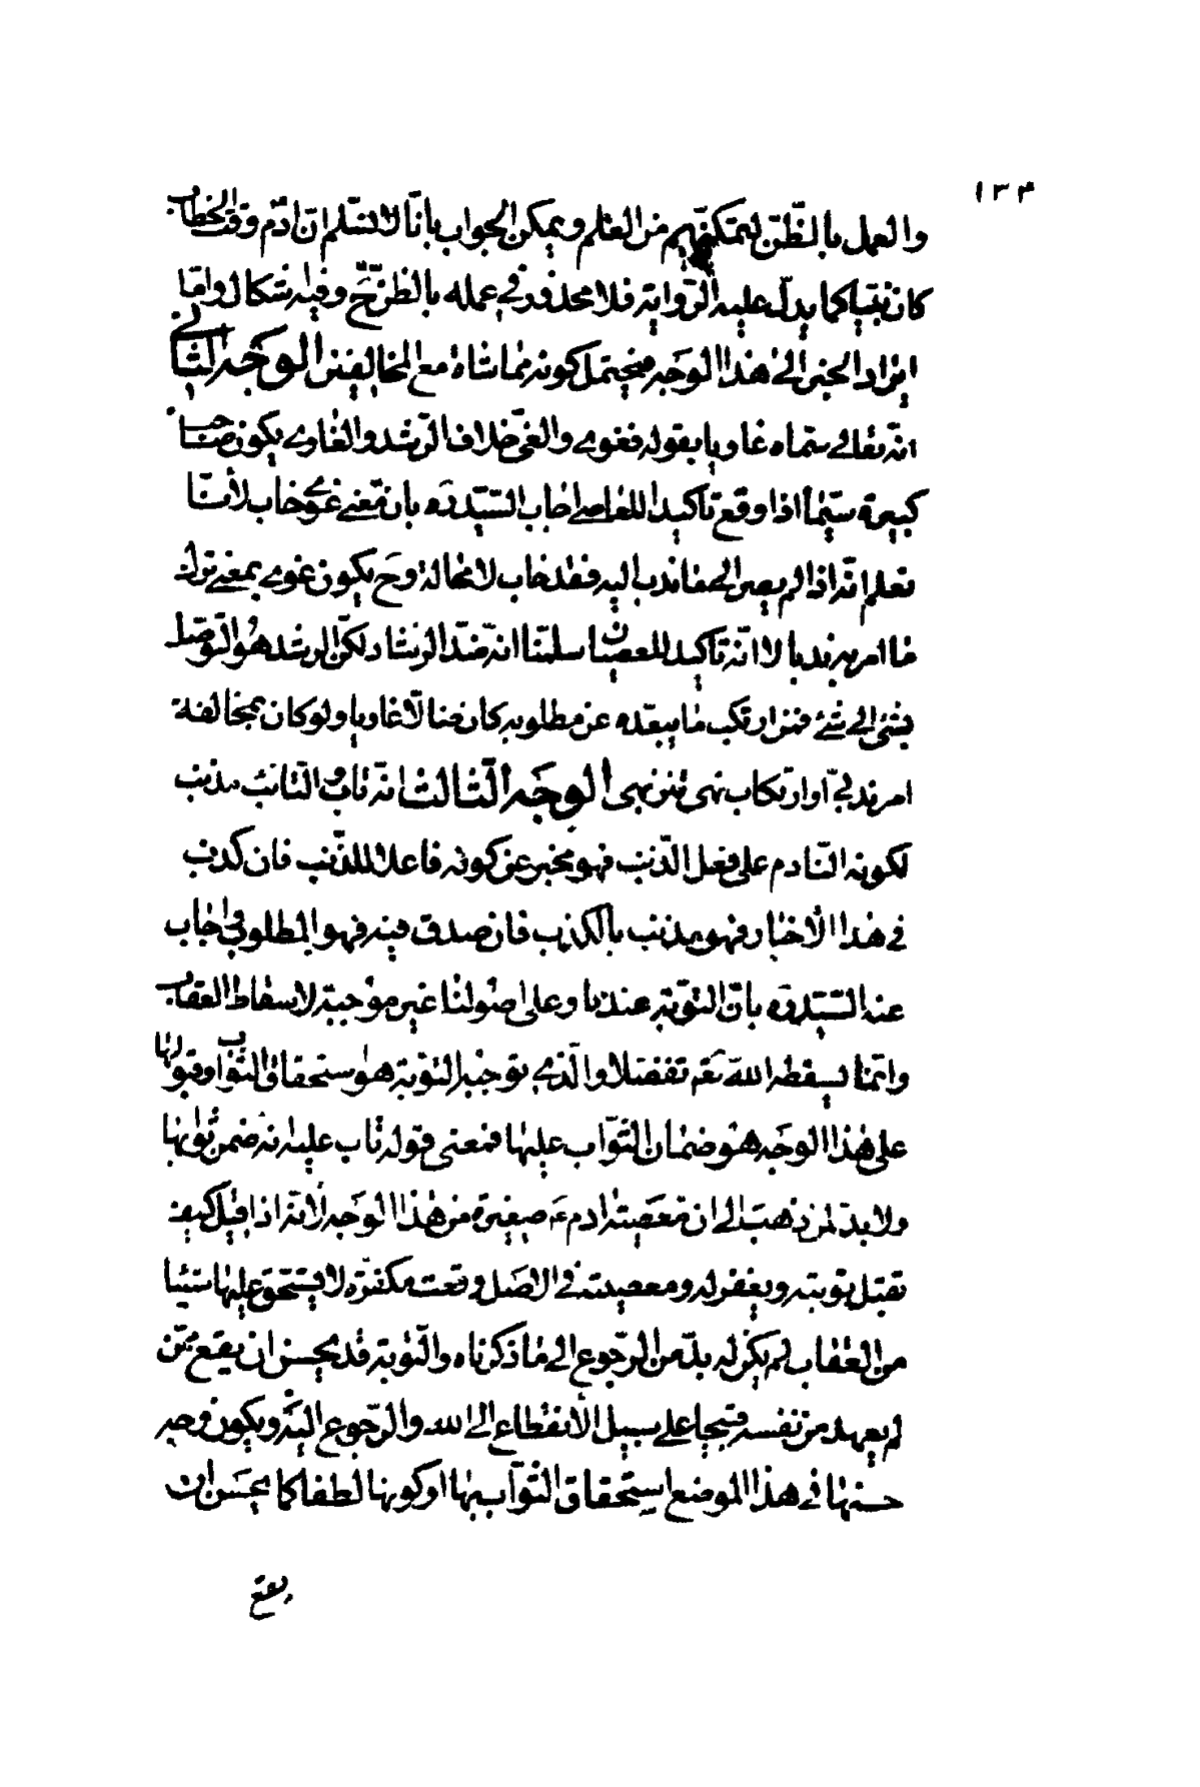 ١٣٤
والعمل بالظن لتمكنهم من العلم ويمكن الجواب بانا لا نسلم ان ادم وقت الخطاب
كان نبيا كما يدل عليه الرواية فلا محذور في عمله بالظن ح وفيه اشكال واما
ايراد الخبر الى هذا الوجه فيحتمل كونه مماشاة مع المخالفين الوجه الثاني
انه تعالى سماه غاويا بقوله فغوى والغي خلاف الرشد والغاوي يكون صاحب
كبيرة سيما اذا وقع تاكيدا للعاصي اجاب السيد ره بان معنى غوى خاب لأنا
نعلم انه اذا لم يصر الى ما ندب اليه فقد خاب لا محالة وح يكون غوى بمعنى ترك
ما امر به ندبا لا انه تاكيد للعصيان سلمنا انه ضد الرشاد لكن الرشد هو التوصل
بشئ الى شئ فمن ارتكب ما يبعده عن مطلوبه كان ضالا غاويا ولو كان بمخالفة
امر ندبي او ارتكاب نهى تنزيهى الوجه الثالث انه تاب والتائب مذنب
لكونه النادم على فعل الذنب فهو مخبر عن كونه فاعلا للذنب فان كذب
في هذا الاخبار فهو مذنب بالكذب فان صدق فيه فهو المطلوب واجاب
عنه السيد ره بان التوبة عندنا وعلى اصولنا غير موجبة لاسقاط العقاب
وانما يسقطه الله تعم تفضلا والذي توجبه التوبة هو استحقاق الثواب وقبولها
على هذا الوجه هو ضمان الثواب عليها فمعنى قوله تاب عليه انه ضمن ثوابها
ولا بد لمن ذهب الى ان معصيته ادم ع صغيرة من هذا الوجه لأنه اذا قيل كيف
تقبل توبته ويغفر له ومعصيته في الاصل وقعت مكفرة لا يستحق عليها شيئا
من العقاب لم يكن له بد من الرجوع الى ما ذكرناه والتوبة قد يحسن ان يقع ممن
لم يعهد من نفسه قبيحا على سبيل الأنقطاع الى الله والرجوع اليه ويكون وجه
حسنها في هذا الموضع استحقاق الثواب بها او كونها لطفا كما يحسن ان
يقع